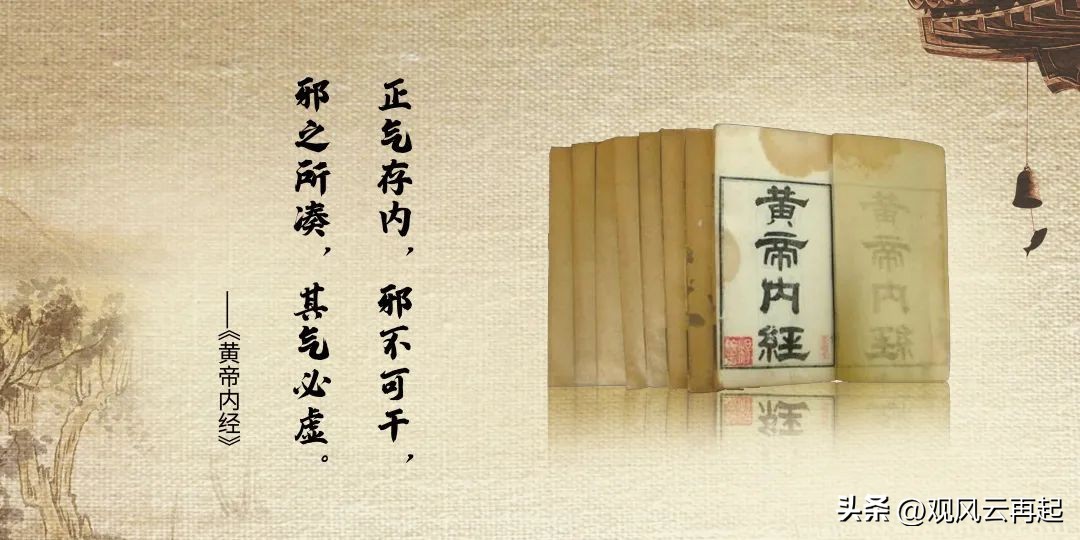 正气存内，邪不可干，
邪之所凑，其气必虚。
——《黄帝内经》
黄帝内經
头条 @观风云再起